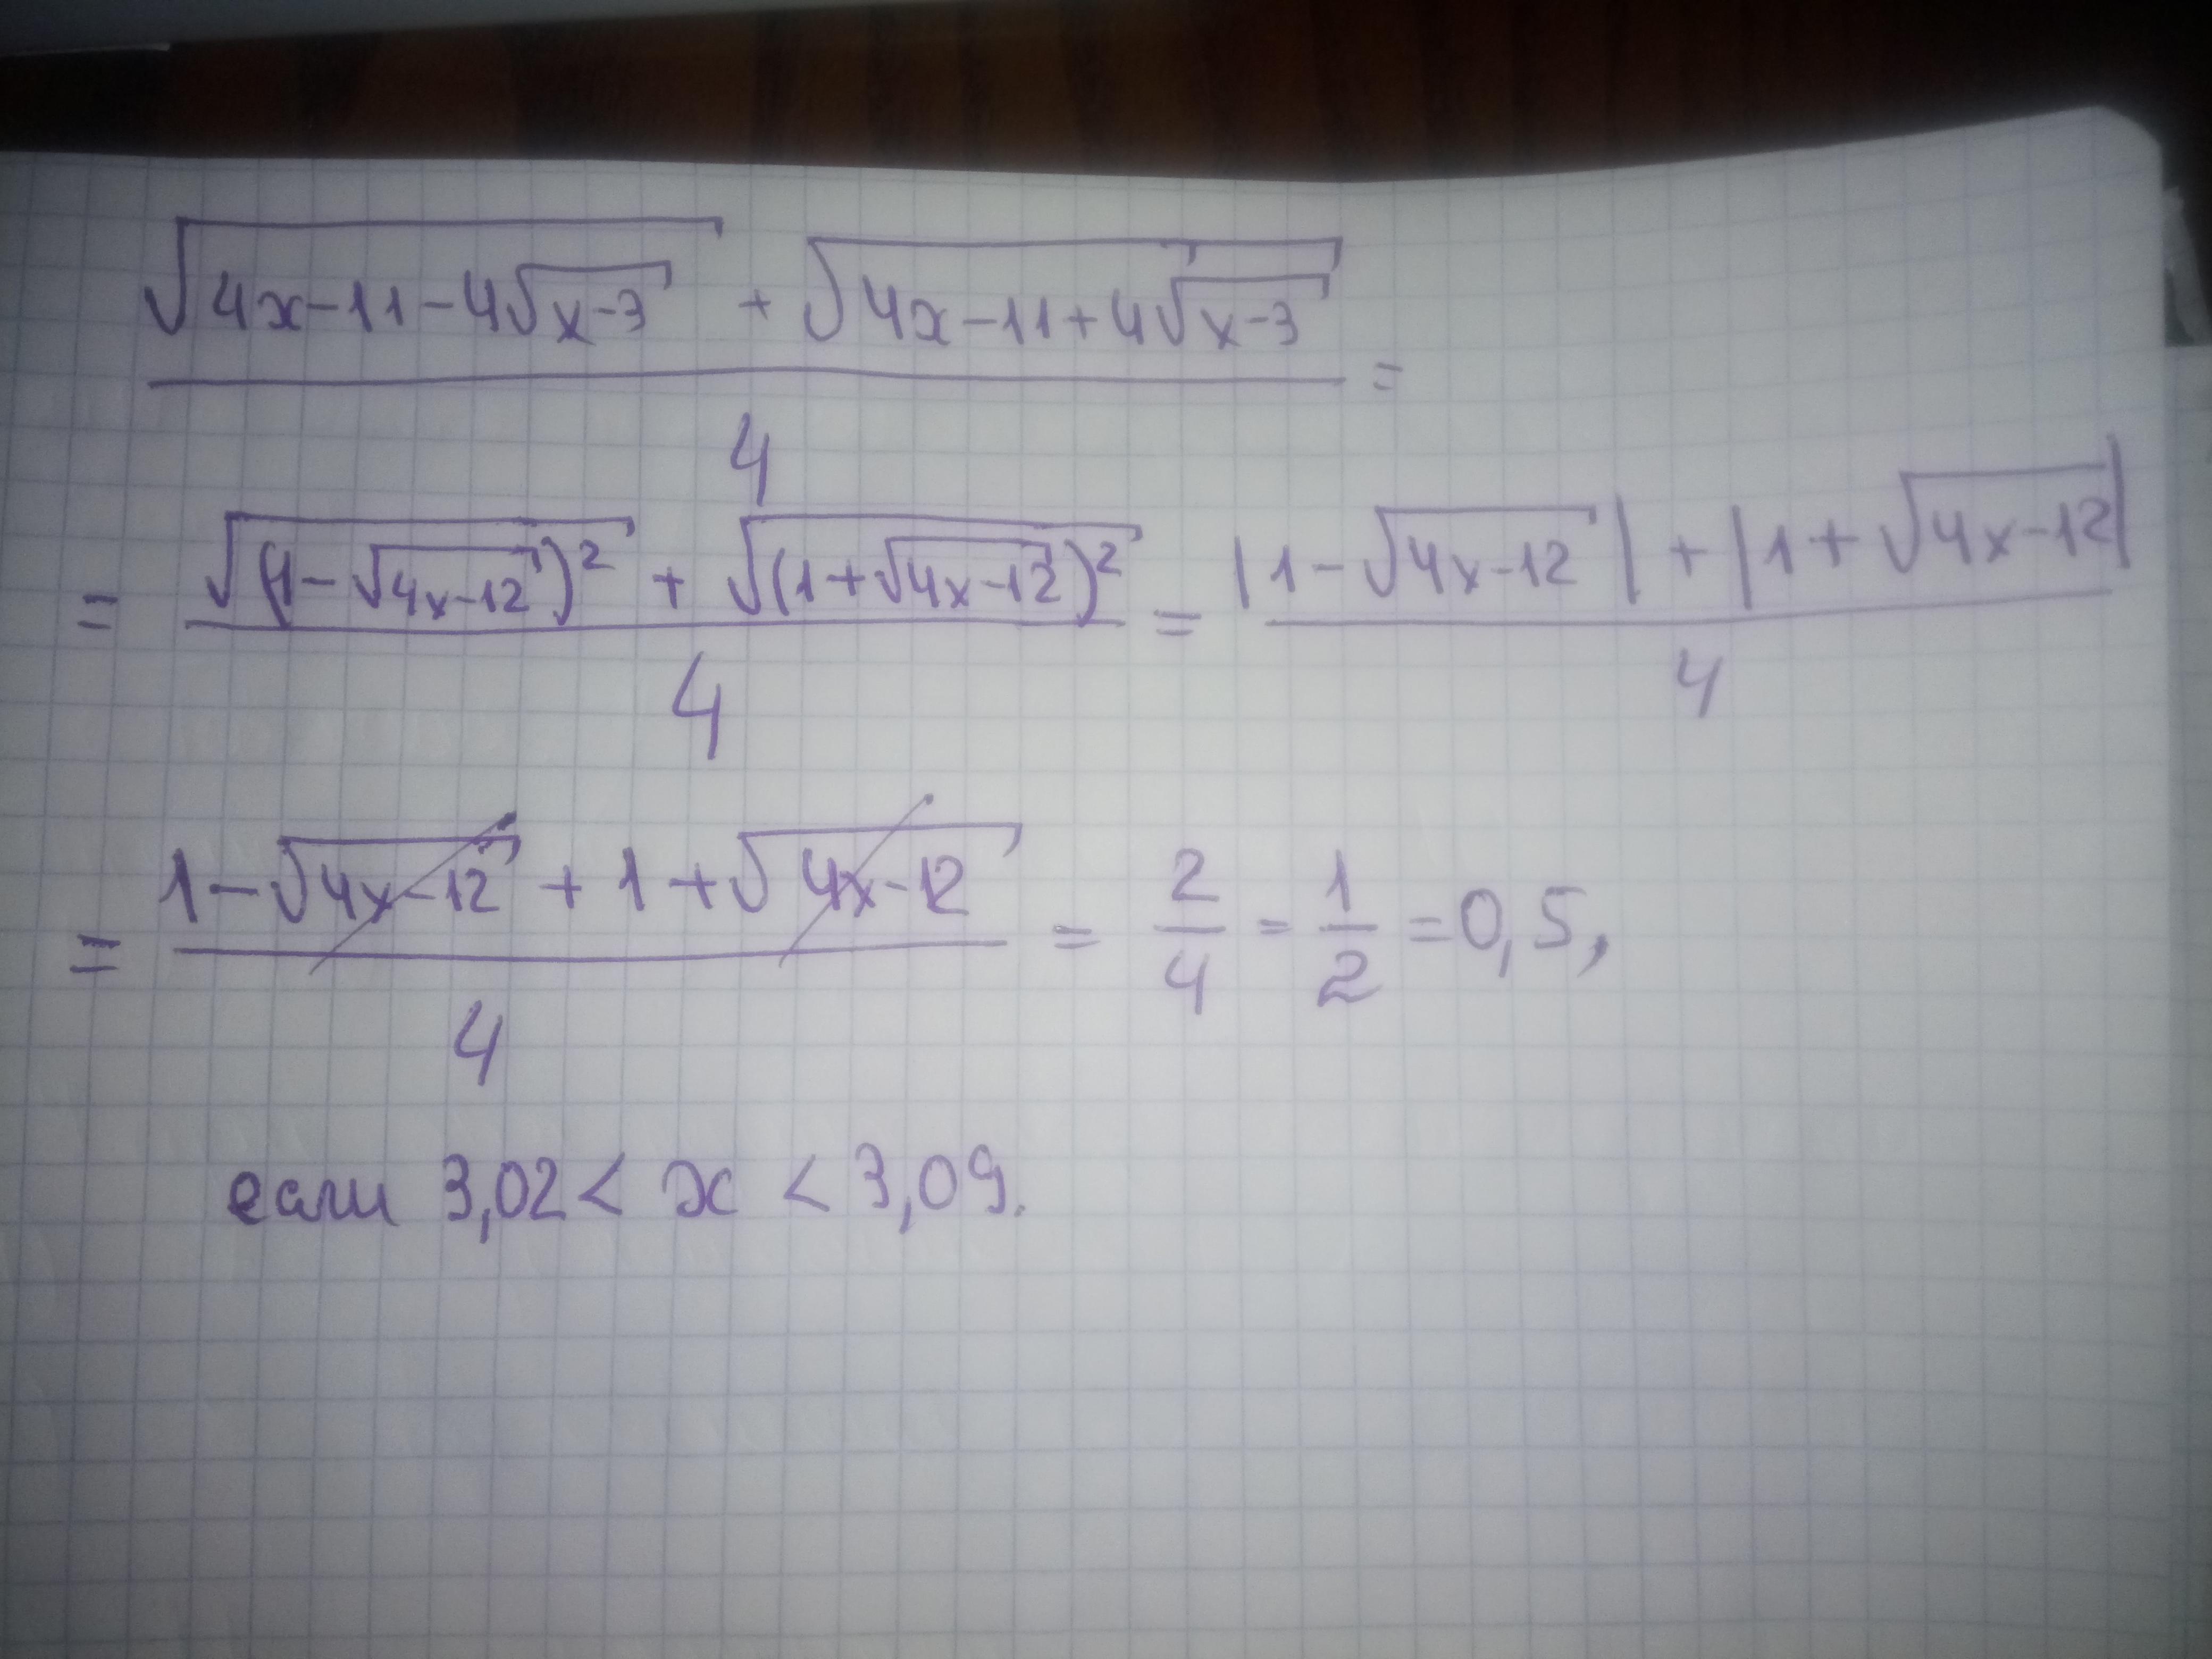 (√(4x-11-4√(x-3)) + √(4x-11+4√(x-3)))/4 =
= (√((1-√(4x-12))²) + √((1+√(4x-12))²))/4 = (|1-√(4x-12)| + |1+√(4x-12)|)/4
= (1-√(4x-12) + 1+√(4x-12))/4 = 2/4 = 1/2 = 0,5,
если 3,02 < x < 3,09.